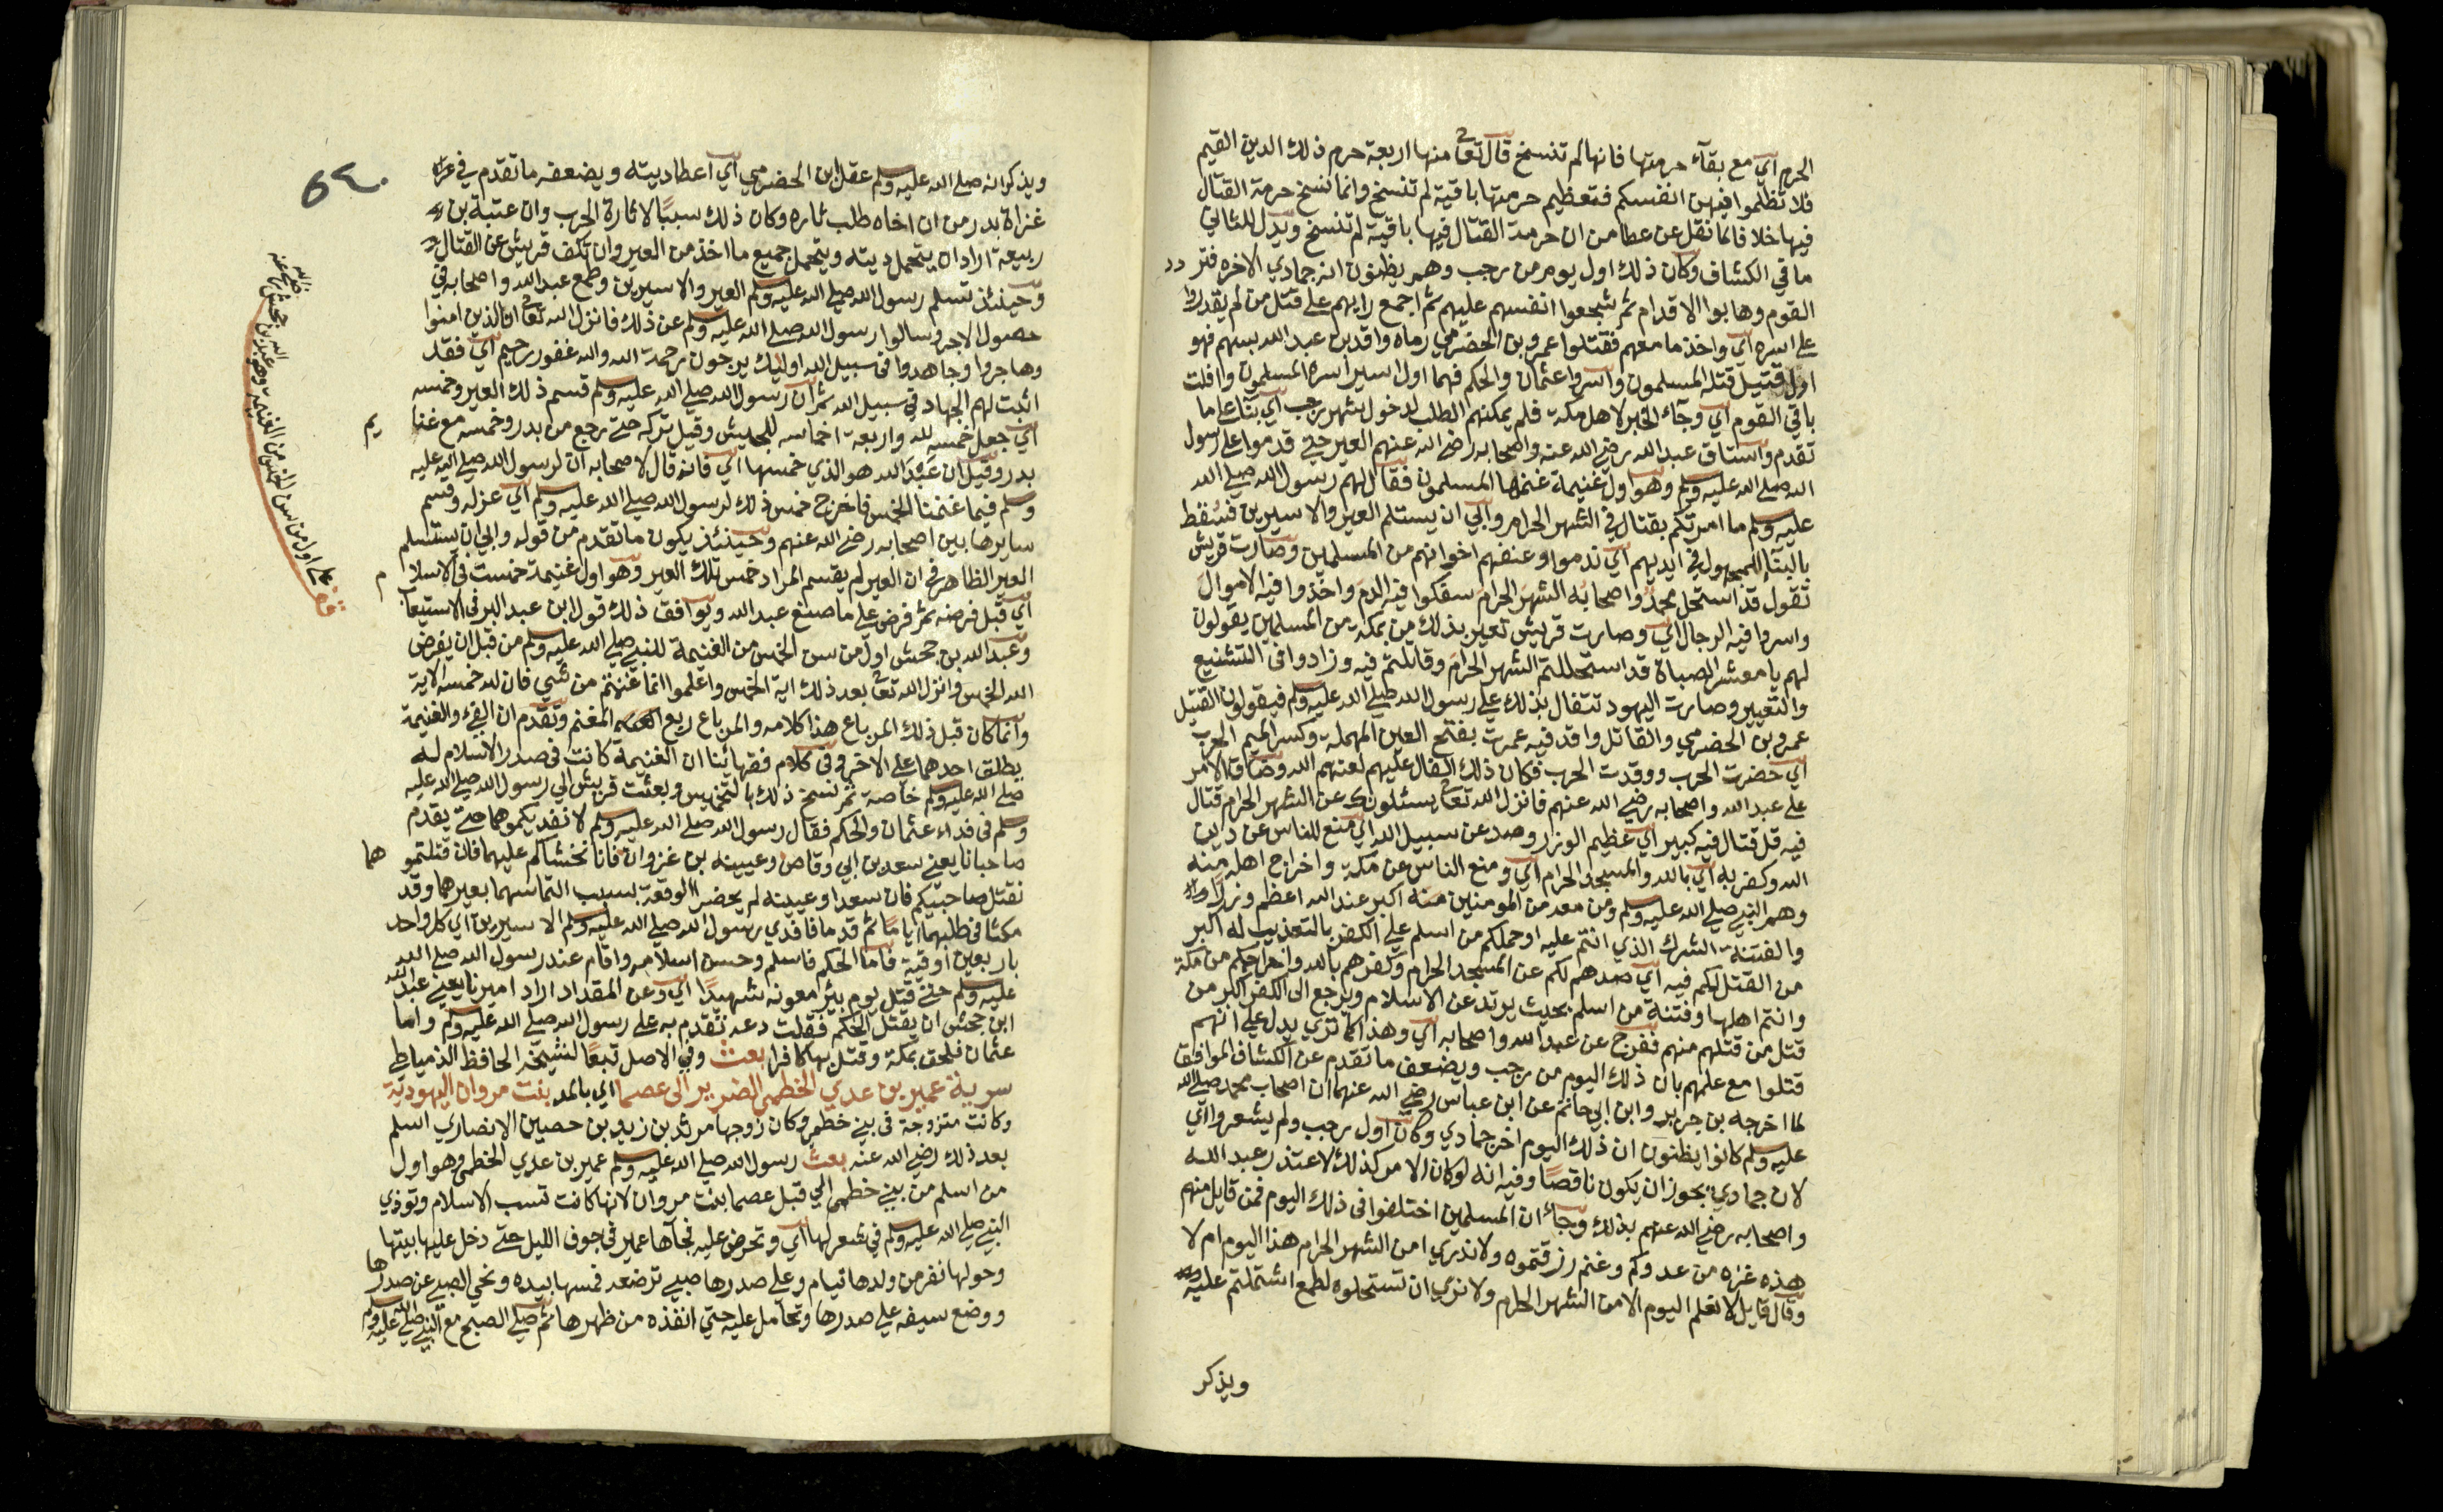 الحرم اي مع بقآء حرمتها فانها لم تنسخ قال تعا منها اربعة حرم ذلك الدين القيم
فلا تظلموا فيهن انفسكم فتعظيم حرمتها باقية لم تنسخ وانما نسخ حرمة القتال
فيها خلافا لما نقل عن عطا من ان حرمة القتال فيها باقية لم تنسخ ويدل للثاني
ما في الكشاف وكان ذلك اول يوم من رجب وهم يظنون انه جمادي الاخره فتردد
القوم وهابوا الاقدام ثم شجعوا انفسهم عليهم ثم اجمع رايهم على قتل من لم يقدروا
على اسره اي واخذ ما معهم فقتلوا عمرو بن الحضرمي رماه واقد بن عبد الله بسهم فهو
اول قتيل قتله المسلمون واسروا عثمان والحكم فهما اول اسير اسره المسلمون وافلت
باقي القوم اي وجآء الخبر لاهل مكة فلم يمكنهم الطلب لدخول شهر رجب اي بنا على ما
تقدم واستاق عبد الله رضي الله عنه واصحابه رضي الله عنهم العير حتى قدموا على رسول
الله صلى الله عليه وسلم وهو اول غنيمة غنمها المسلمون فقال لهم رسول الله صلى الله
عليه وسلم ما امرتكم بقتال في الشهر الحرام وابي ان يستلم العير والاسيرين فسقط
بالبنآء للمجهول في ايديهم اي ندموا وعنفهم اخوانهم من المسلمين وصارت قريش
تقول قد استحل محمد واصحابه الشهر الحرام سفكوا فيه الدم واخذوا فيه الاموال
واسروا فيه الرجال اي وصارت قريش تعير بذلك من بمكة من المسلمين يقولون
لهم يا معشر الصباة قد استحللتم الشهر الحرام وقاتلتم فيه وزادوا في التشنيع
والتعيير وصارت اليهود تتفال بذلك على رسول الله صلى الله عليه وسلم فيقولون القتيل
عمرو بن الحضرمي والقاتل واقد فيه عمرت بفتح العين المهملة وكسر الميم الحرب
اي حضرت الحرب ووقدت الحرب فكان ذلك الفال عليهم لعنهم الله وضاق الامر
على عبد الله واصحابه رضي الله عنهم فانزل الله تعا يسئلونك عن الشهر الحرام قتال
فيه قل قتال فيه كبير اي عظيم الوزر وصد عن سبيل الله اي منع للناس عن دين
الله وكفر به اي بالله والمسجد الحرام اي ومنع الناس عن مكة واخراج اهله منه
وهم النبي صلى الله عليه وسلم ومن معه من المومنين منه اكبر عند الله اعظم وزرا
والفتنة الشرك الذي انتم عليه او حملكم من اسلم على الكفر بالتعذيب له اكبر
من القتل لكم فيه اي صدهم لكم عن المسجد الحرام وكفرهم بالله واخراجكم من مكة
وانتم اهلها وفتنة من اسلم بحيث يرتد عن الاسلام ويرجع الى الكفر اكبر من
قتل من قتلهم منهم ففرج عن عبد الله واصحابه اي وهذا كما تري يدل على انهم
قتلوا مع علمهم بان ذلك اليوم من رجب ويضعف ما تقدم عن الكشاف الموافق
لما اخرجه بن جرير وابن ابي حاتم عن ابن عباس رضي الله عنهما ان اصحاب محمد صلى الله
عليه وسلم كانوا يظنون ان ذلك اليوم اخر جمادي وكان اول رجب ولم يشعروا اي
لان جمادي يجوز ان يكون ناقصا وفيه انه لو كان الامر كذلك لاعتذر عبد الله
واصحابه رضي الله عنهم بذلك وجآء ان المسلمين اختلفوا في ذلك اليوم فمن قايل منهم
هذه غره من عدوكم وغنم رزقتموه ولا ندري امن الشهر الحرام هذا اليوم ام لا
وقال قايل لا نعلم اليوم الا من الشهر الحرام ولا نري ان تستحلوه لطمع اشتملتم عليه
ويذكر
ويذكر انه صلى الله عليه وسلم عقل ابن الحضرمي اي اعطا ديته ويضعفه ما تقدم في
غزاة بدر من ان اخاه طلب ثاره وكان ذلك سببا لاثارة الحرب وان عتبة بن
ربيعة اراد ان يتحمل ديته ويتحمل جميع ما اخذ من العير وان تكف قريش عن القتال
وحينئذ تسلم رسول الله صلى الله عليه وسلم العير والاسيرين وطمع عبد الله واصحابه في
حصول الاجر وسالوا رسول الله صلى الله عليه وسلم عن ذلك فانزل الله تعا ان الذين امنوا
وهاجروا وجاهدوا في سبيل الله اوليك يرجون رحمة الله والله غفور رحيم اي فقد
اثبت لهم الجهاد في سبيل الله ثم ان رسول الله صلى الله عليه وسلم قسم ذلك العير وخمسه
اي جعل خمسه لله واربعة اخماسه للجيش وقيل تركه حتى رجع من بدر وخمسه مع غنايم
بدر وقيل ان عبد الله هو الذي خمسها اي فانه قال لاصحابه ان لرسول الله صلى الله عليه
وسلم فيما غنمنا الخمس فاخرج خمس ذلك لرسول الله صلى الله عليه وسلم اي عزله وقسم
سايرها بين اصحابه رضي الله عنهم وحينئذ يكون ما تقدم من قوله وابي ان يستسلم
العير الظاهر في ان العير لم يقسم المراد خمس تلك العير وهو اول غنيمة خمست في الاسلام
اي قبل فرضه ثم فرض على ما صنع عبد الله ويوافق ذلك قول ابن عبد البر في الاستيعاب
وعبد الله بن جحش اول من سن الخمس من الغنيمة للنبي صلى الله عليه وسلم من قبل ان يفرض
الله الخمس وانزل الله تعا بعد ذلك اية الخمس واعلموا انما غنمتم من شي فان لله خمسه الاية
وانما كان قبل ذلك المرباع هذا كلامه والمرباع ربع المغنم وتقدم ان الفيء والغنيمة
يطلق احدهما على الاخر وفي كلام فقهائنا ان الغنيمة كانت في صدر الاسلام له
صلى الله عليه وسلم خاصة ثم نسخ ذلك بالتخميس وبعثت قريش الي رسول الله صلى الله عليه
وسلم في فداء عثمان والحكم فقال رسول الله صلى الله عليه وسلم لا نفديكموهما حتى يقدم
صاحبانا يعني سعد بن ابي وقاص وعيينه بن غزوان فانا نخشاكم عليهما فان قتلتموهما
نقتل صاحبيكم فان سعدا وعيينه لم يحضر الوقعة بسبب التماسهما بعيرهما وقد
مكثا في طلبهما اياما ثم قدما فافدي رسول الله صلى الله عليه وسلم الاسيرين اي كل واحد
باربعين اوقية فاما الحكم فاسلم وحسن اسلامه واقام عند رسول الله صلى الله
عليه وسلم حتى قتل يوم بئر معونه شهيدا اي وعن المقداد اراد اميرنا يعني عبد الله
ابن جحش ان يقتل الحكم فقلت دعه نقدم به على رسول الله صلى الله عليه وسلم واما
عثمان فلحق بمكة وقتل بها كافرا بعث وفي الاصل تبعا لشيخه الحافظ الدمياطي
سرية عمير بن عدي الخطمي الضرير الى عصما اي بالمد بنت مروان اليهودية
وكانت متزوجة في بني خطمه وكان زوجها مرثد بن زيد بن حصين الانصاري اسلم
بعد ذلك رضي الله عنه بعث رسول الله صلى الله عليه وسلم عمير بن عدي الخطمي وهو اول
من اسلم من بني خطمه الي قبل عصما بنت مروان لانها كانت تسب الاسلام وتوذي
النبي صلى الله عليه وسلم في شعر لها اي وتحرض عليه فجآها عمير في جوف الليل حتى دخل عليها بيتها
وحولها نفر من ولدها نيام وعلى صدرها صبي ترضعه فمسها بيده ونحي الصبي عن صدرها
ووضع سيفه على صدرها وتحامل عليه حتي انفذه من ظهرها ثم صلى الصبح مع النبي صلى الله عليه وسلم
اول من سن الخمس من الغنيمة وهو عبد الله بن جحش رضي الله عنه